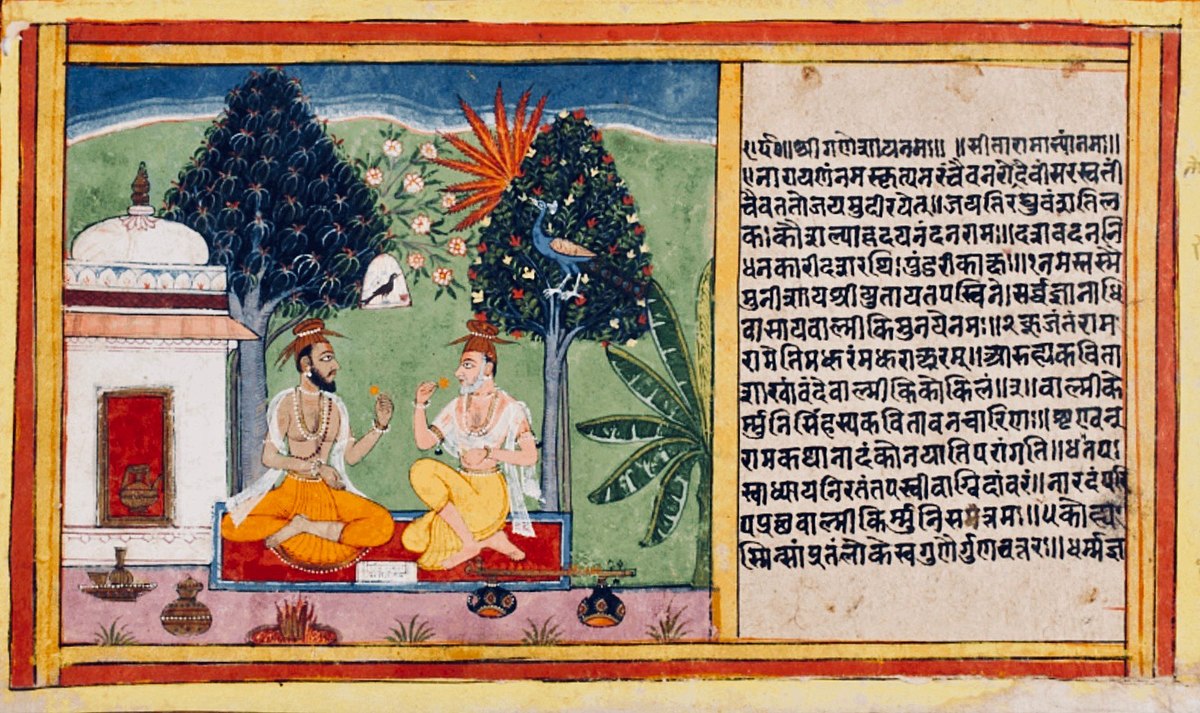 ॥र्द०॥श्रीगणेशायनमः॥ ॥सीतारामाभ्यांनमः॥
नारायणंनमस्कृत्यनरंचैवनरोत्तमं देवींसरस्वतीं
चैवततोजयमुदीरयेत्॥जयतिरघुवंशतिल
कःकौशल्याहृदयनंदनरामः॥दशवदननि
धनकारीदाशरथिःपुंडरीकाक्षः॥१नमस्तस्मै
मुनीशायश्रीयुतायतपस्विने॥सर्वज्ञानाधि
वासायवाल्मीकिमुनयेनमः॥२कूजंतंराम
रामेतिमधुरंमधुराक्षरम्॥आरुह्यकविता
शाखांवंदेवाल्मीकिकोकिलं॥३॥वाल्मीके
र्मुनिसिंहस्यकवितावनचारिणः॥शृण्वन्
रामकथानादंकोनयातिपरांगतिं॥४तपः
स्वाध्यायनिरतंतपस्वीवाग्विदांवरं॥नारदंपरि
पप्रच्छवाल्मीकिर्मुनिसत्तमः॥५कोह्य
स्मिन्सांप्रतंलोकेस्वगुणैर्गुणवत्तरः॥धर्मज्ञ